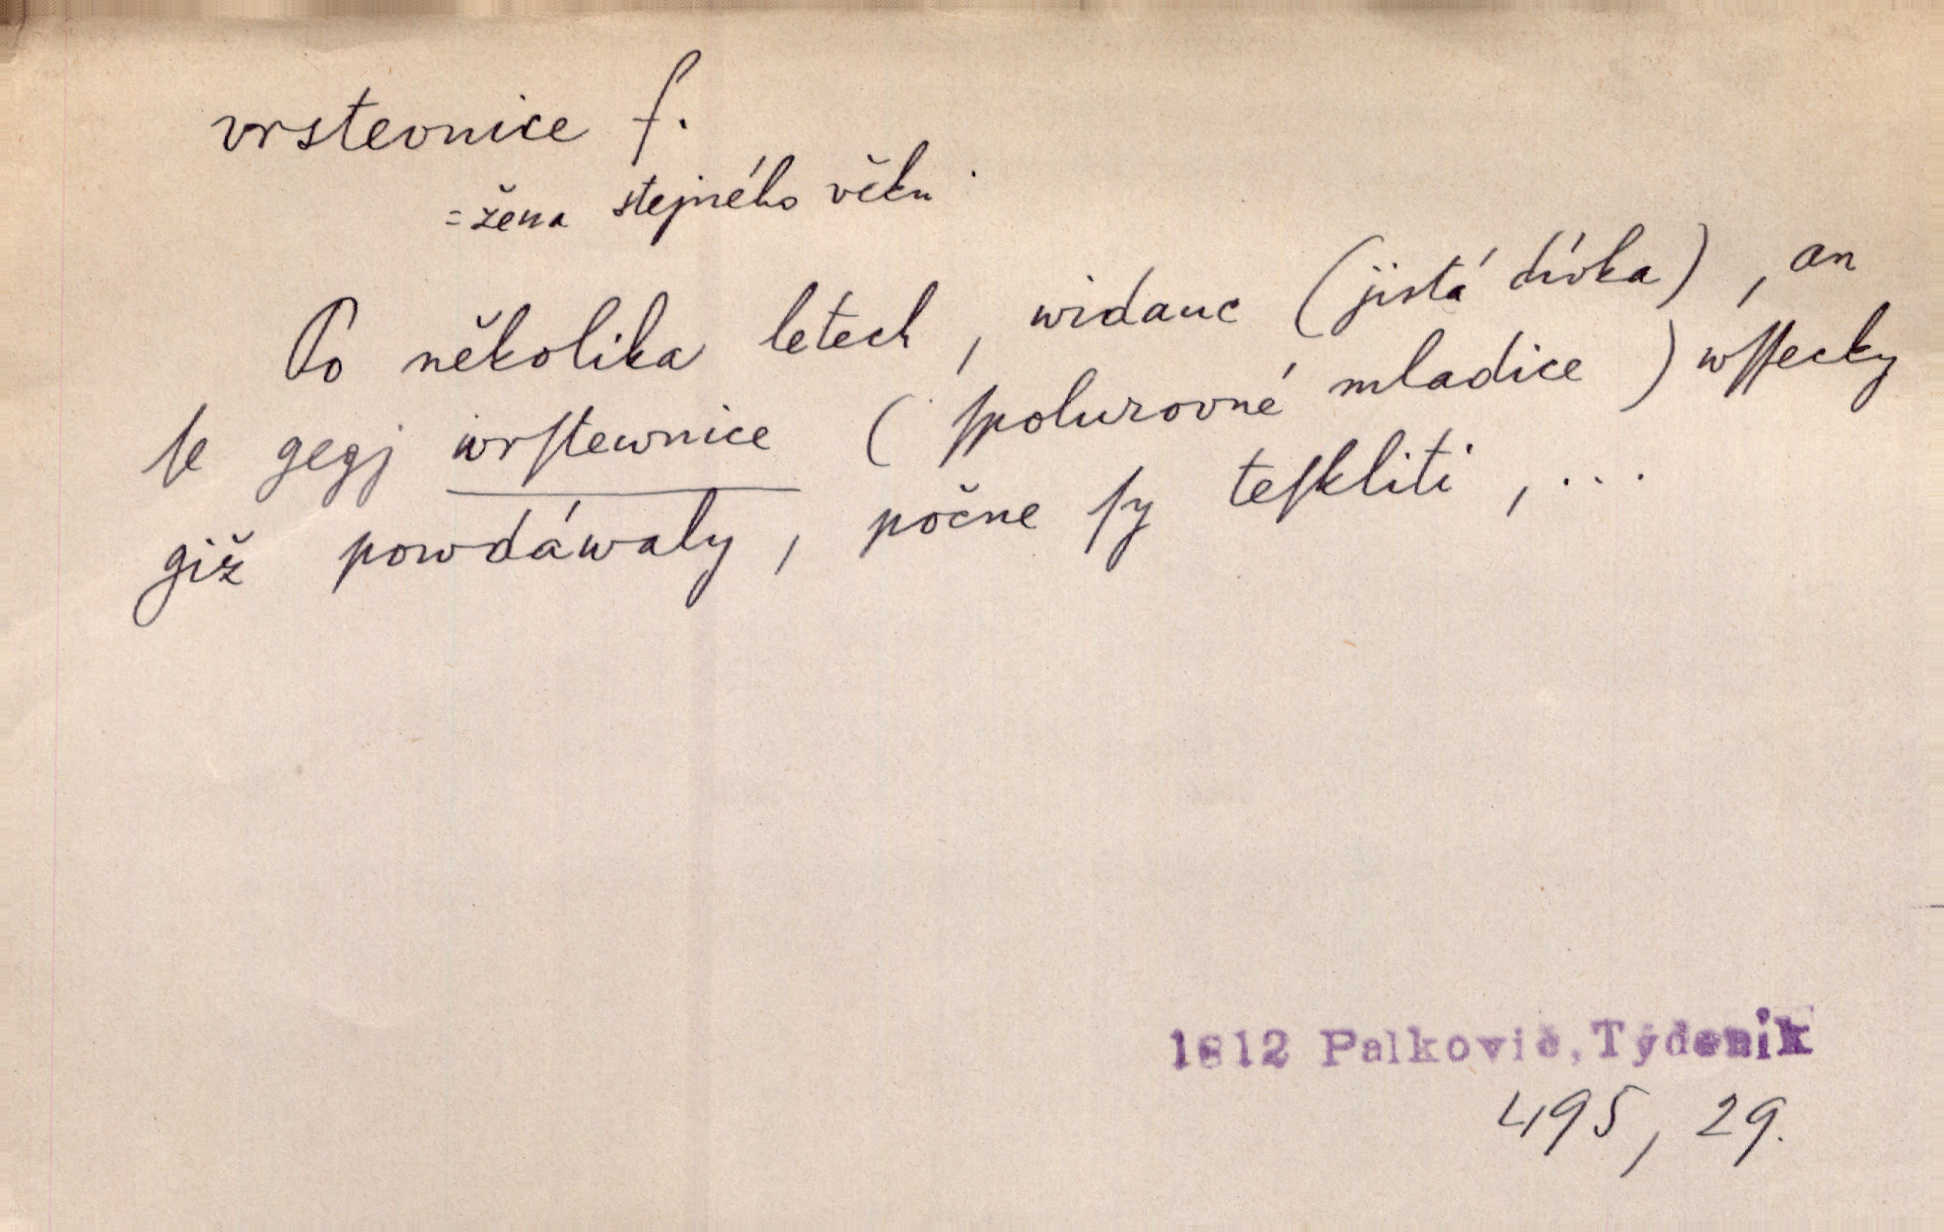 vrstevnice f.
= žena stejného věku.
Po několika letech, widauc (jistá dívka), an
ſe gegj wrſtewnice (ſpolurovné mladice) wſſecky
giž powdáwaly, počne ſy teſkliti, ...
1812 Palkovič, Týdeník
495, 29.